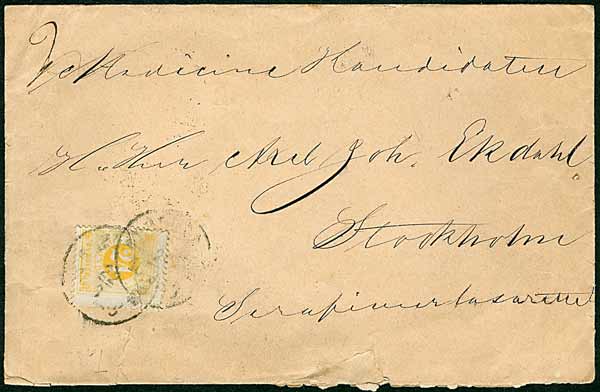 Medicine Kandidaten
H. Herr Axel Joh. Ekdahl
Stockholm
Serafimerlasarettet